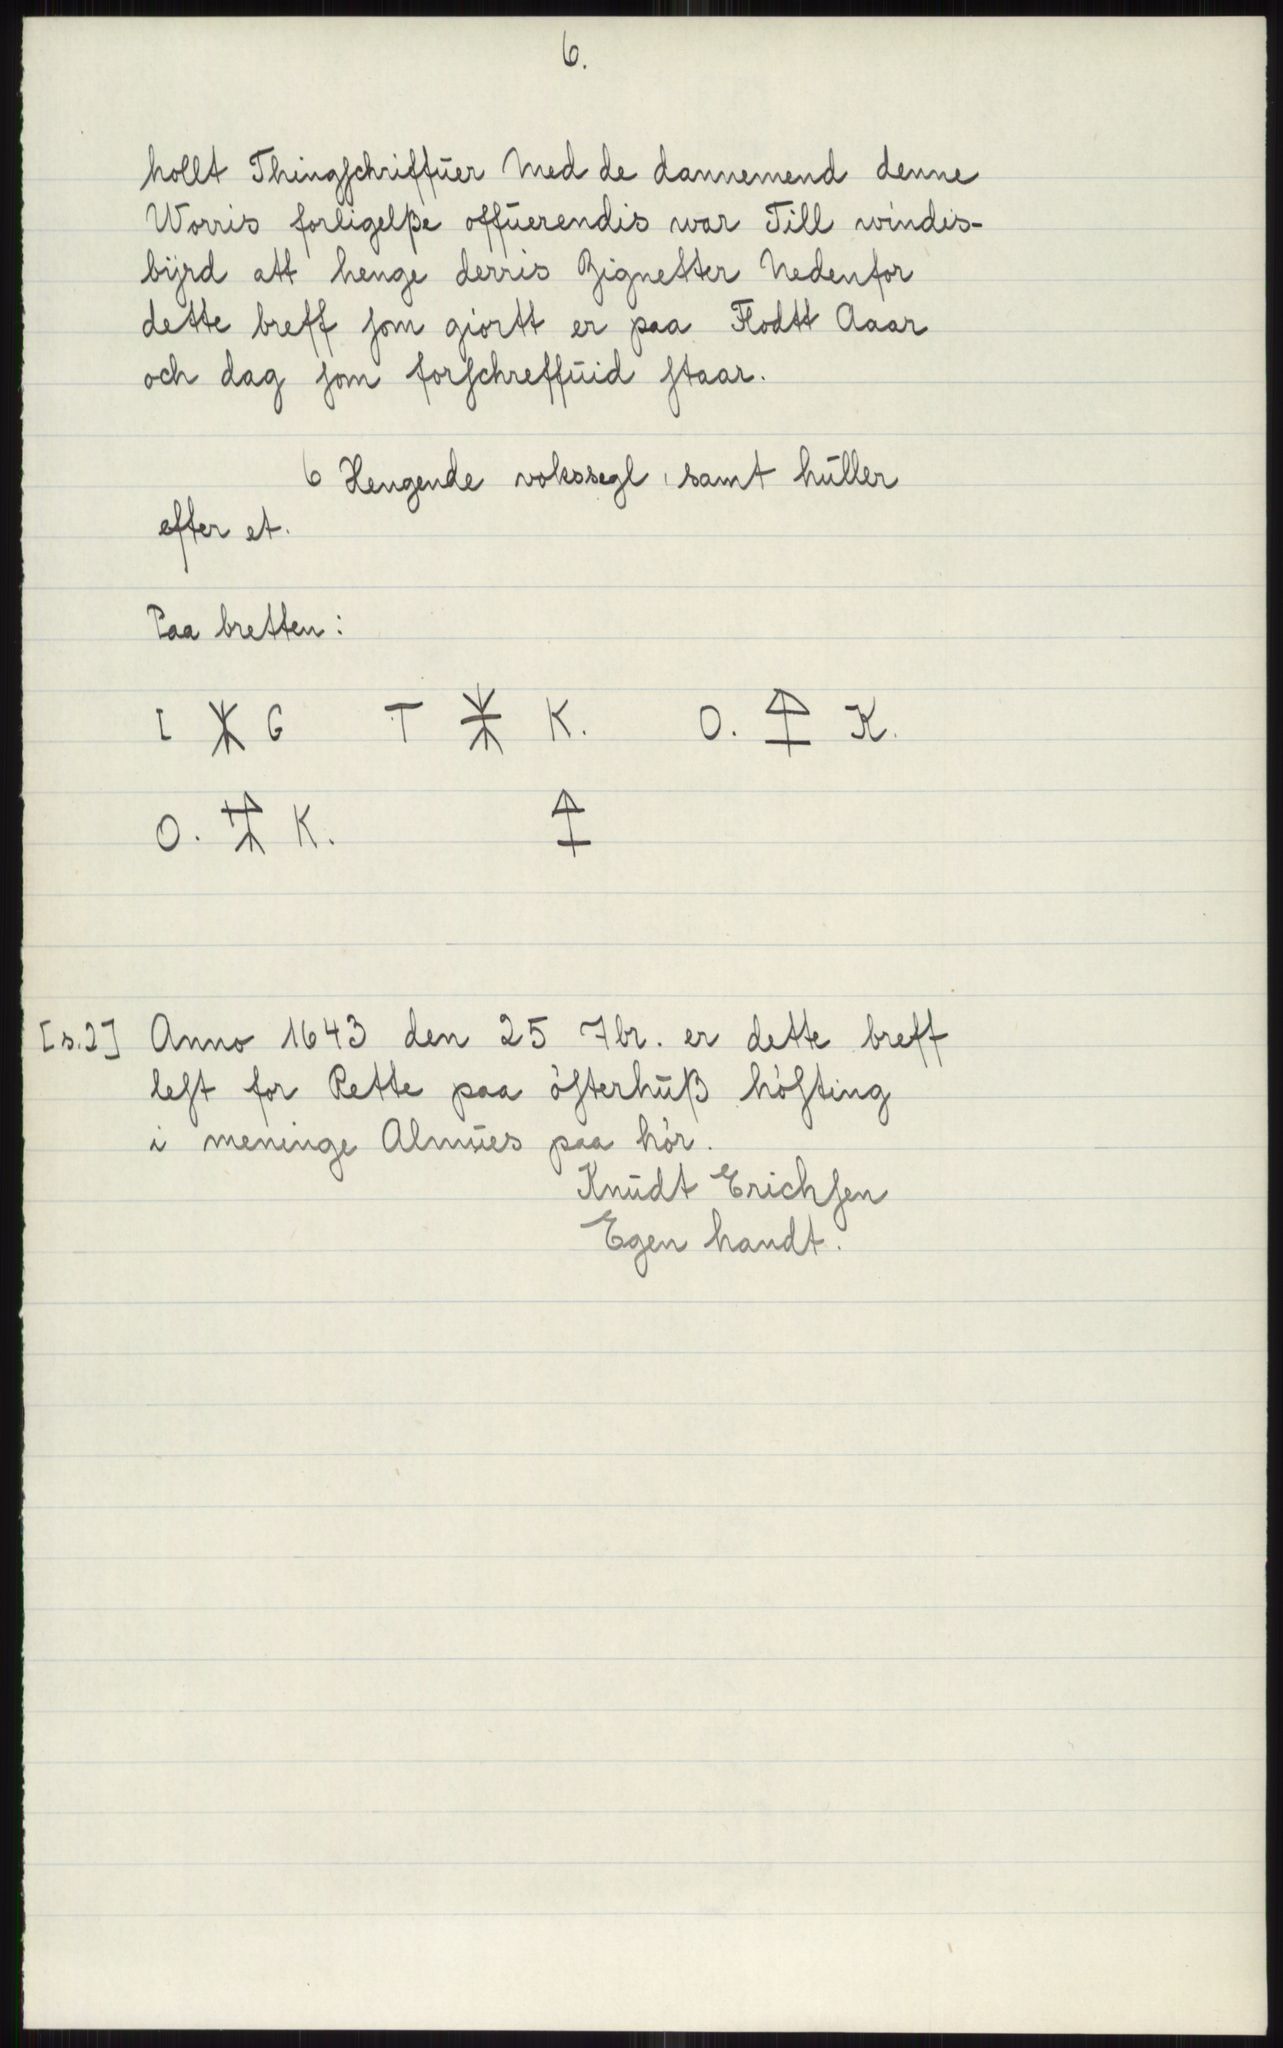 6.
hollt Thingſchriffŭer Med de dannemend denne
Worris forligelße offŭerendis war Till windis-
bÿrd att henge derris Zignetter Nedenfor
dette breff ſom giortt er paa Flodtt Aaar
och dag ſom forſchreffŭid ſtaar.
6 Hengende vokssegl, samt hŭller
efter et.
Paa bretten:
I G T K. O. K.
O. K.
[s.2] Anno 1643 den 25 7br. er dette breff
leſt for Rette paa öſterhŭß höſting
i meninge Almŭes paa hör.
Knŭdt Erichſen
Egen handt.